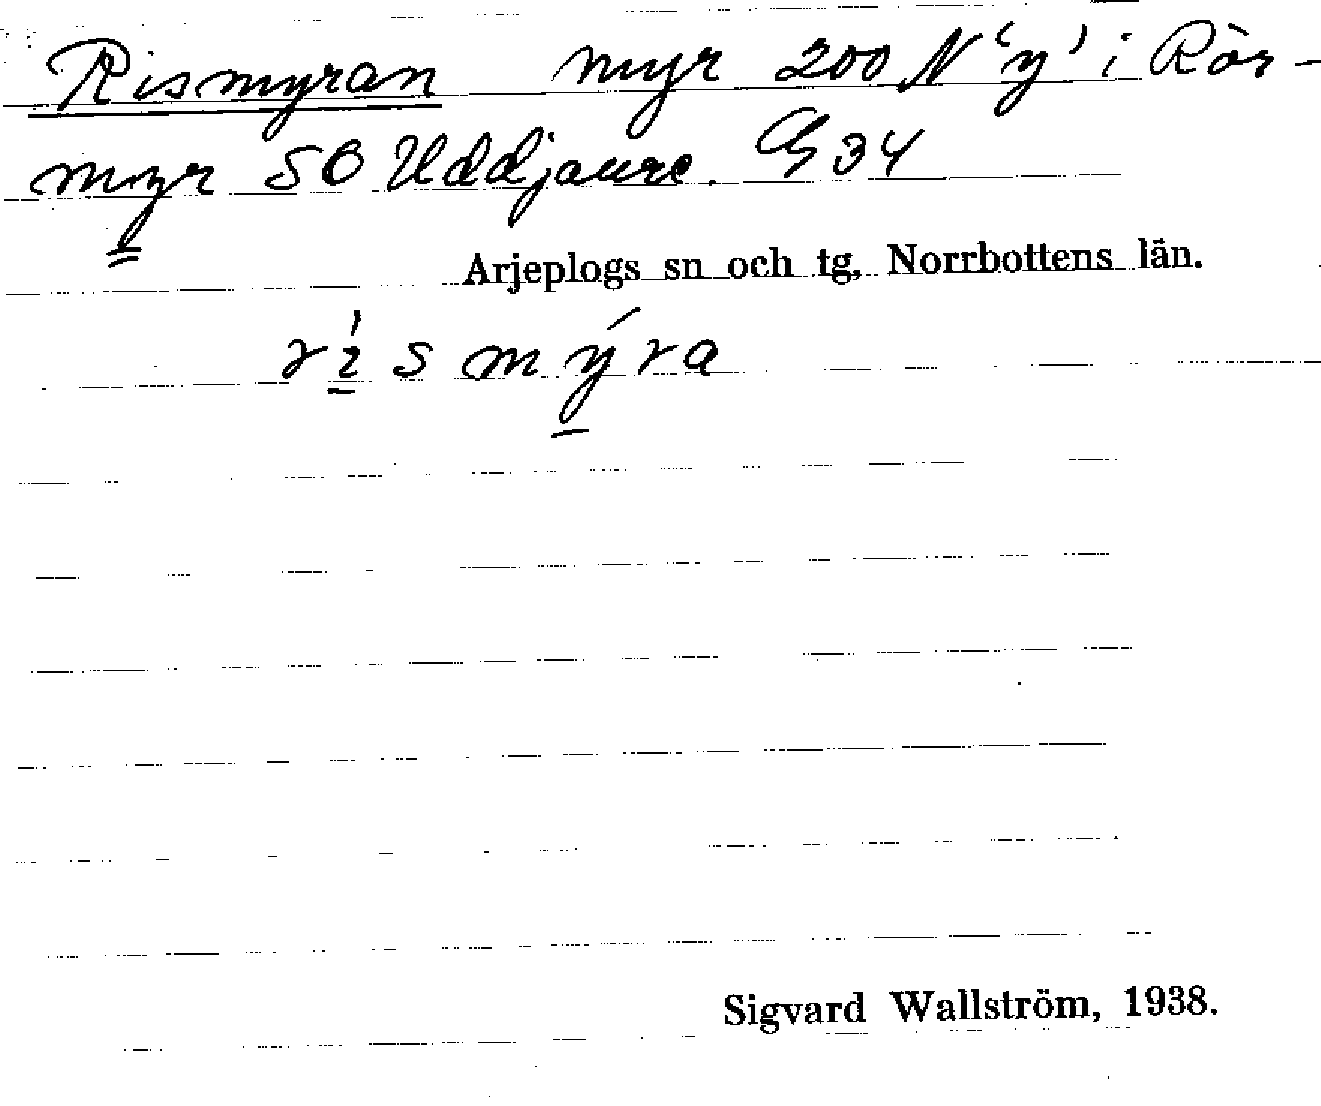 Rismyran myr 200 N 'y' i Rör-
myr SO Uddjaure. G 34
Arjeplogs sn och tg, Norrbottens län.
rìsmýra
Sigvard Wallström, 1938.